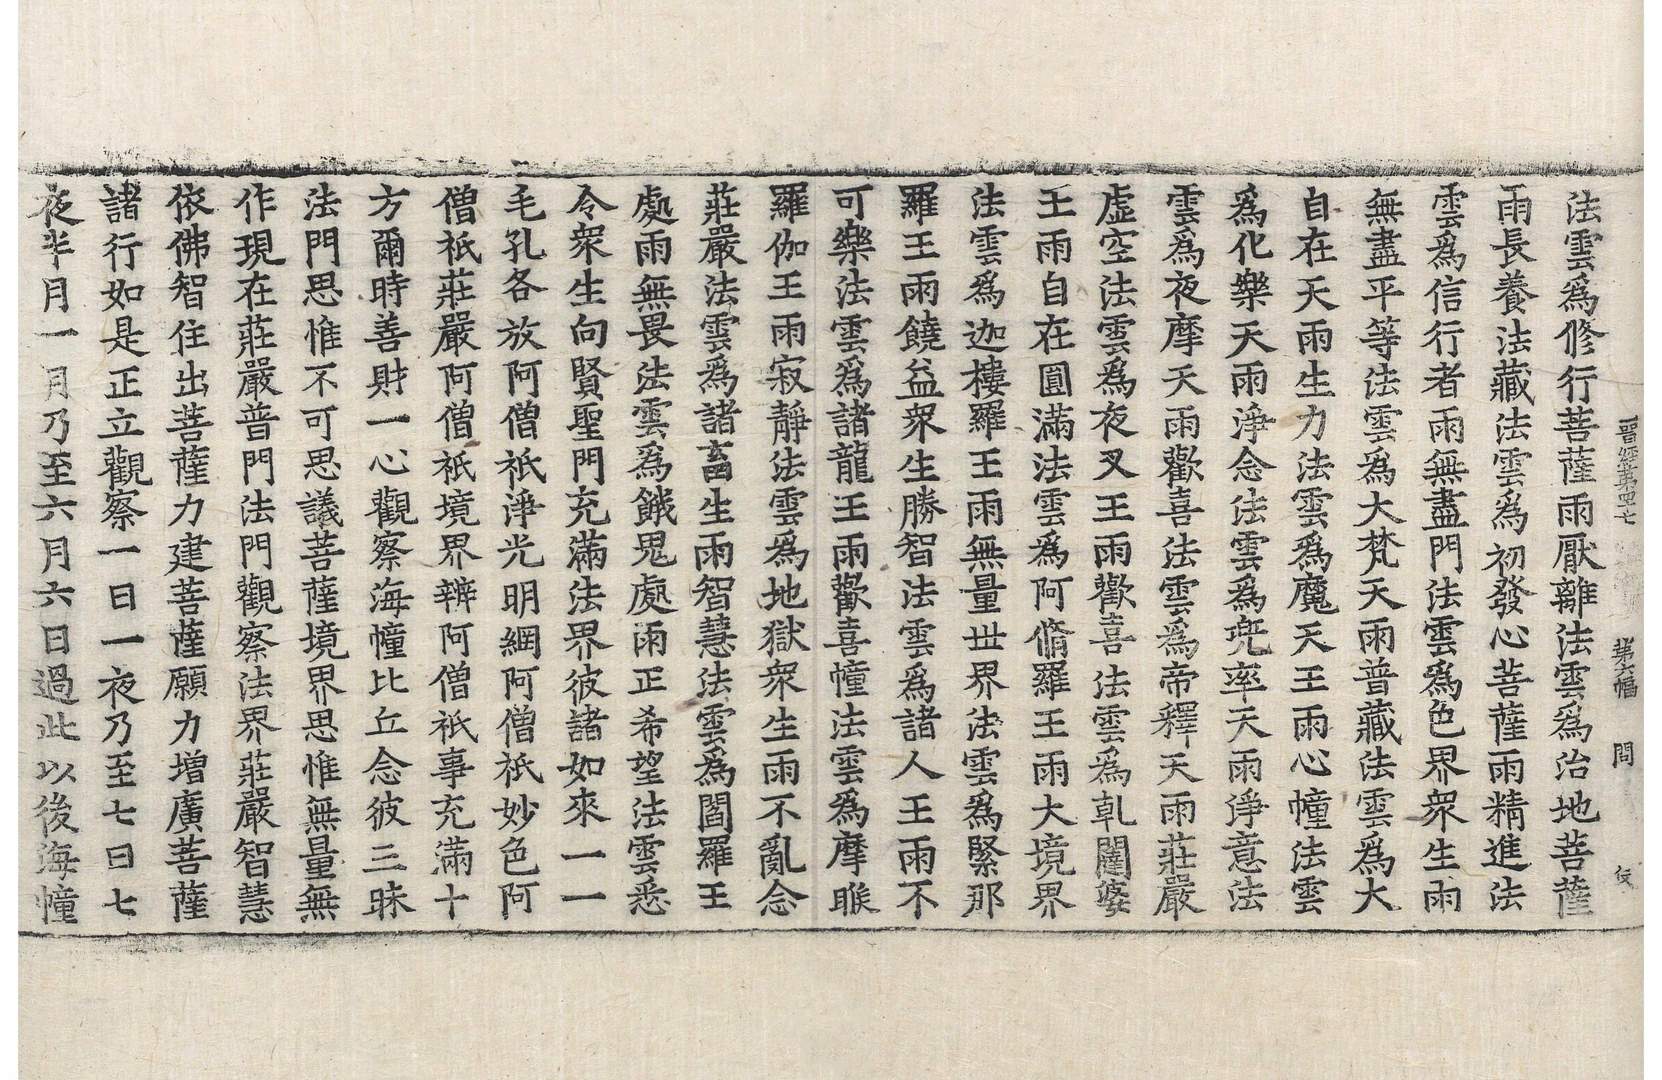 晋經第四七 第六幅 問
法雲爲修行菩薩雨厭離法雲爲治地菩薩
雨長養法藏法雲爲初發心菩薩雨精進法
雲爲信行者雨無盡門法雲爲色界衆生雨
無盡平等法雲爲大梵天雨普藏法雲爲大
自在天雨生力法雲爲魔天王雨心幢法雲
爲化樂天雨淨念法雲爲兜率天雨淨意法
雲爲夜摩天雨歡喜法雲爲帝釋天雨莊嚴
虛空法雲爲夜叉王雨歡喜法雲爲乹闥婆
王雨自在圓滿法雲爲阿脩羅王雨大境界
法雲爲迦樓羅王雨無量世界法雲爲緊那
羅王雨饒益衆生勝智法雲爲諸人王雨不
可樂法雲爲諸龍王雨歡喜幢法雲爲摩睺
羅伽王雨寂靜法雲爲地獄衆生雨不亂念
莊嚴法雲爲諸畜生雨智慧法雲爲閻羅王
處雨無畏法雲爲餓鬼處雨正希望法雲悉
令衆生向賢聖門充滿法界彼諸如來一一
毛孔各放阿僧祇淨光明網阿僧祇妙色阿
僧祇莊嚴阿僧祇境界辦阿僧祇事充滿十
方爾時善財一心觀察海幢比丘念彼三昧
法門思惟不可思議菩薩境界思惟無量無
作現在莊嚴普門法門觀察法界莊嚴智慧
依佛智住出菩薩力建菩薩願力增廣菩薩
諸行如是正立觀察一日一夜乃至七日七
夜半月一月乃至六月六日過此以後海幢